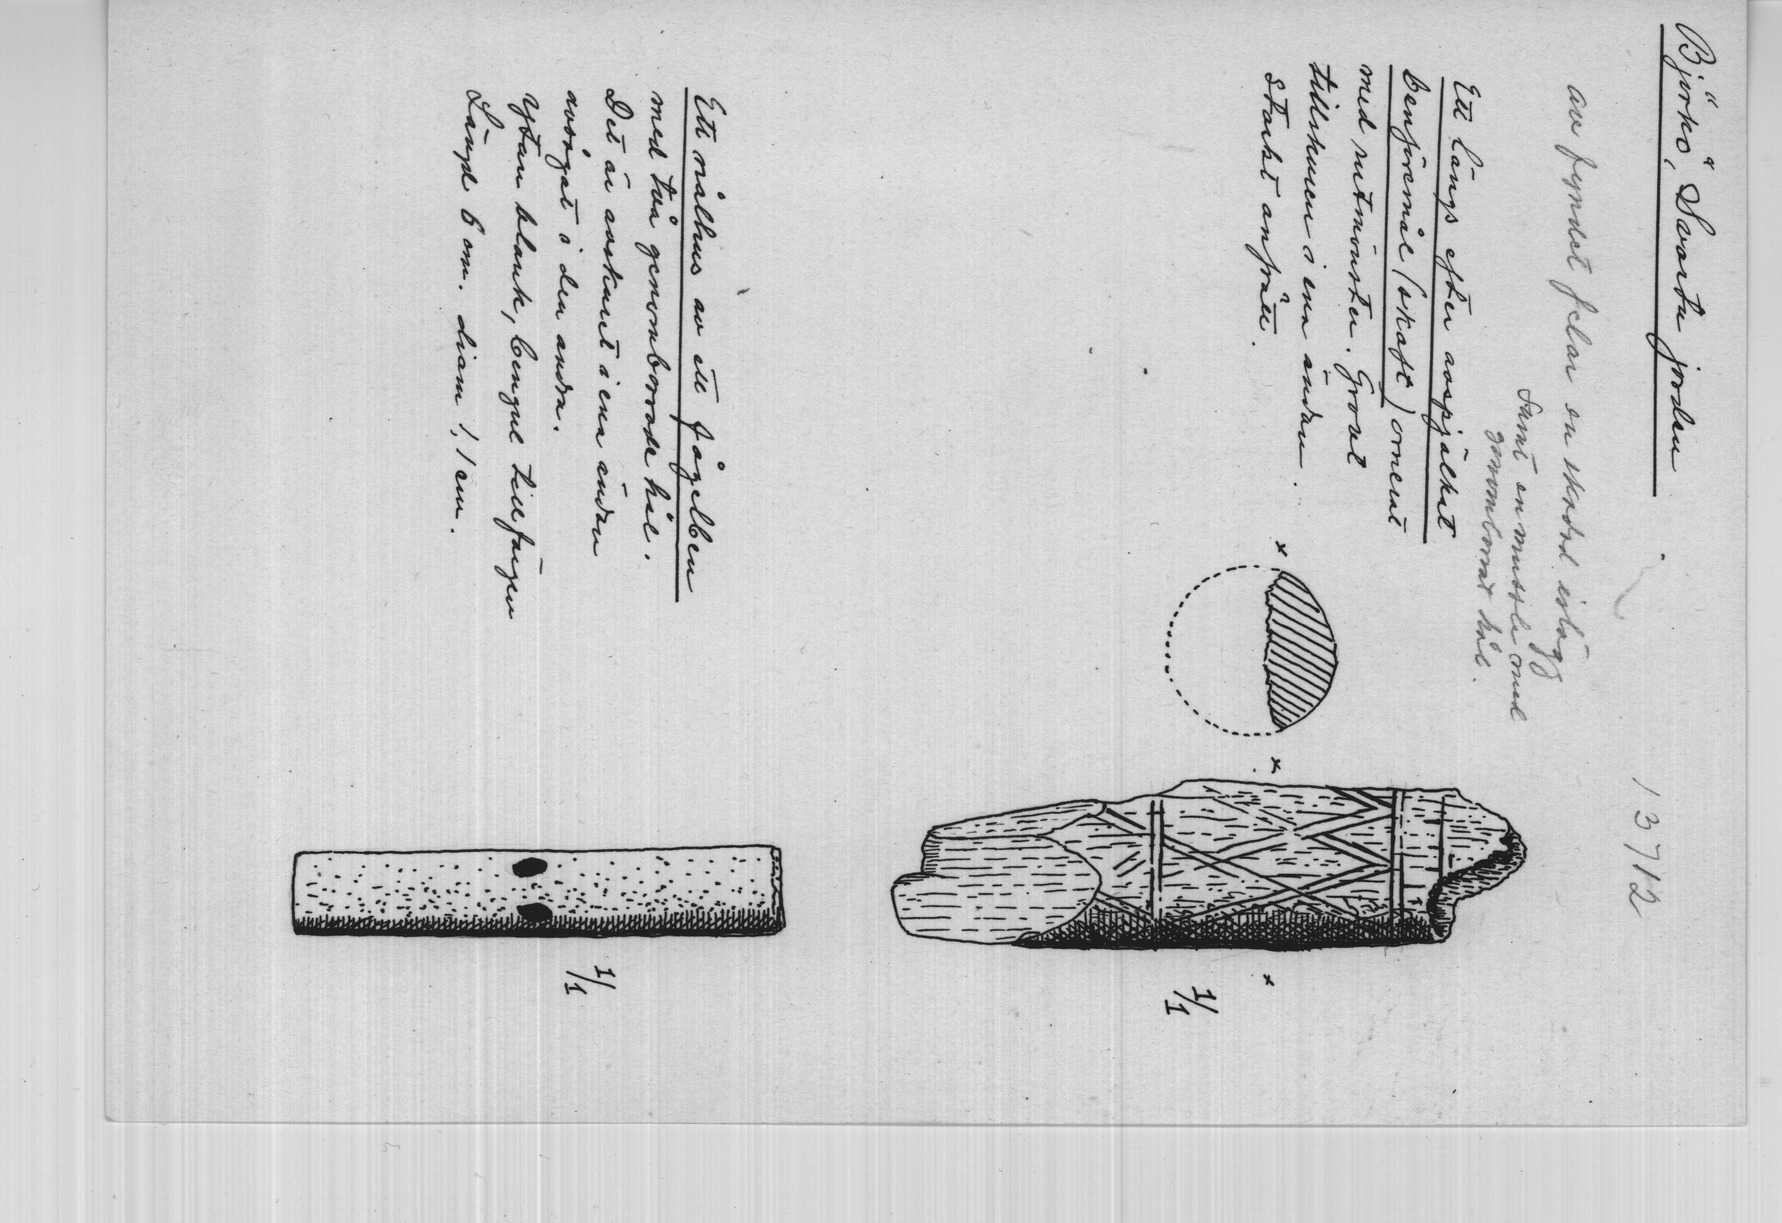 Björkö, Svarta jorden
13712
av fyndet felar en skadad islägg
samt en mussla med
genomborrat hål.
Ett längs efter avspjälkat
benföremål (skaft) orneat
med rutmönster. Grovt
tillskuren i ena ändan.
Starkt anfrätt.
x
x
x
1/1
Ett nålhus av ett fågelben
med två genomborrade hål.
Det är avskuret i ena ändan
avsågat i den andra.
Ytan blank, bengul till färgen
Längd 6 cm. diam 1,1 cm.
1/1